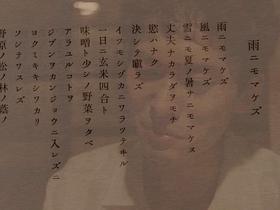 雨ニモマケズ
雨ニモマケズ
風ニモマケズ
雪ニモ夏ノ暑サニモマケヌ
丈夫ナカラダヲモチ
慾ハナク
決シテ瞋ラズ
イツモシヅカニワラツテヰル
一日ニ玄米四合ト
味噌ト少シノ野菜ヲタベ
アラユルコトヲ
ジブンヲカンジョウニ入レズニ
ヨクミキキシワカリ
ソシテワスレズ
野原ノ松ノ林ノ蔭ノ